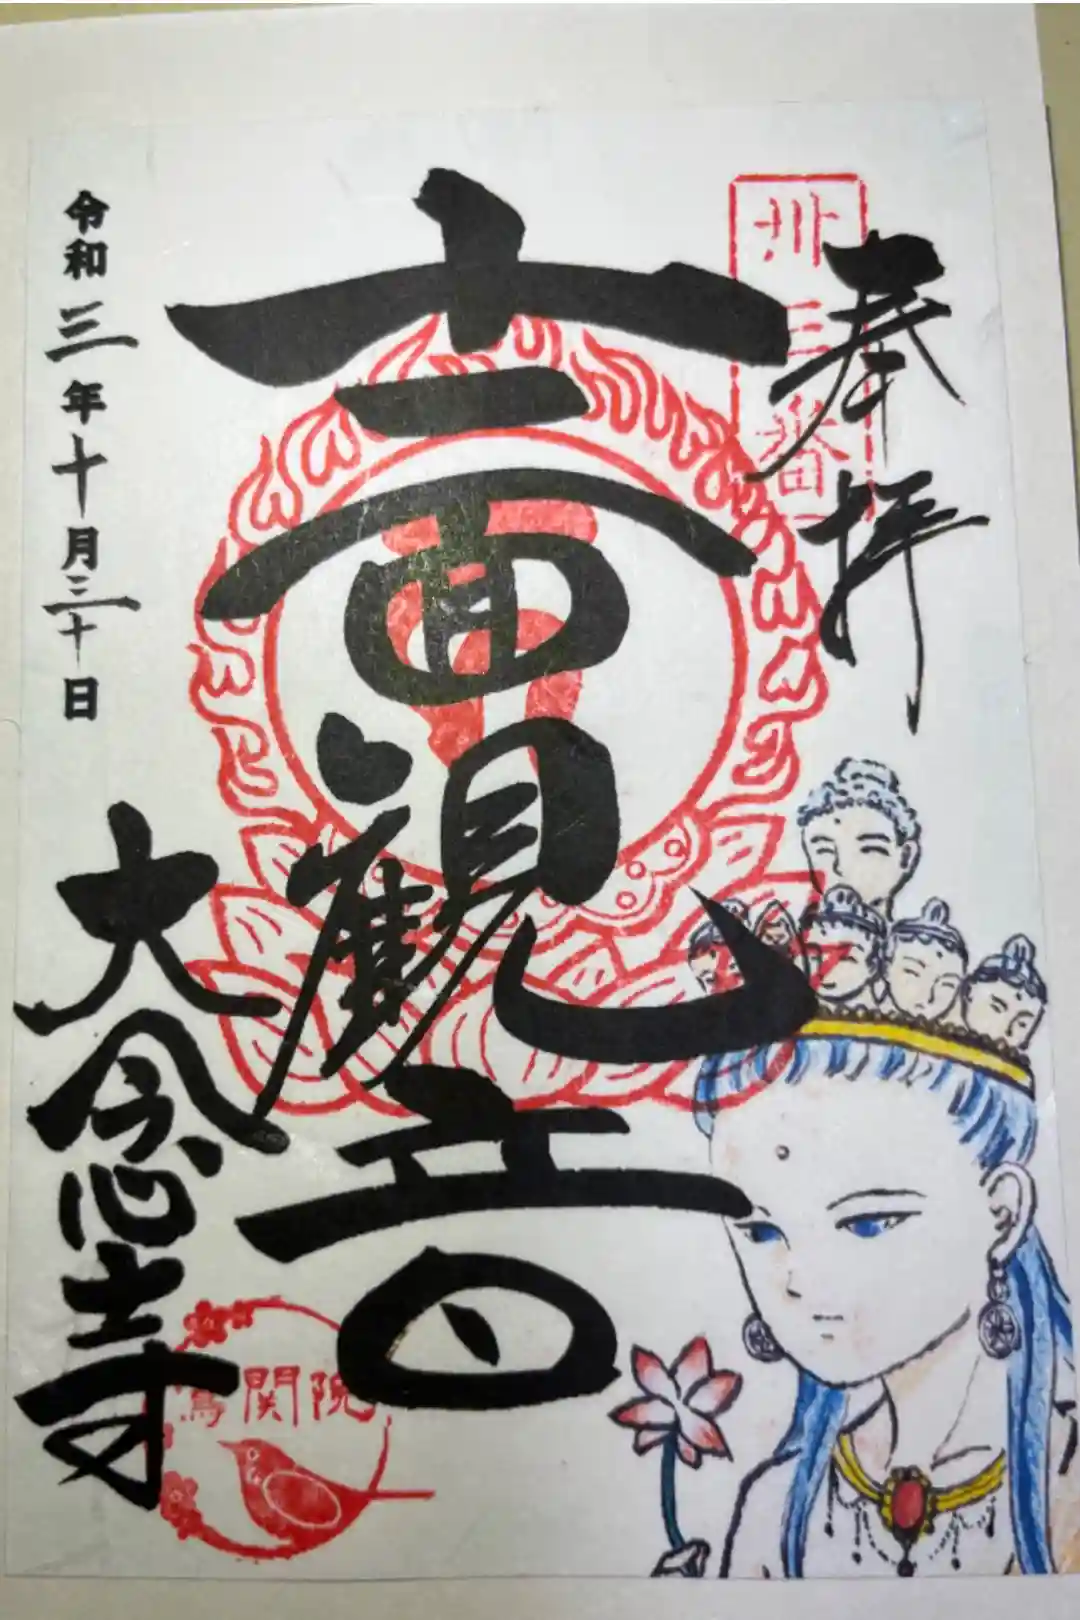 奉拝
卅三番
十一面観音
大念寺
鶯関院
令和三年十月三十日